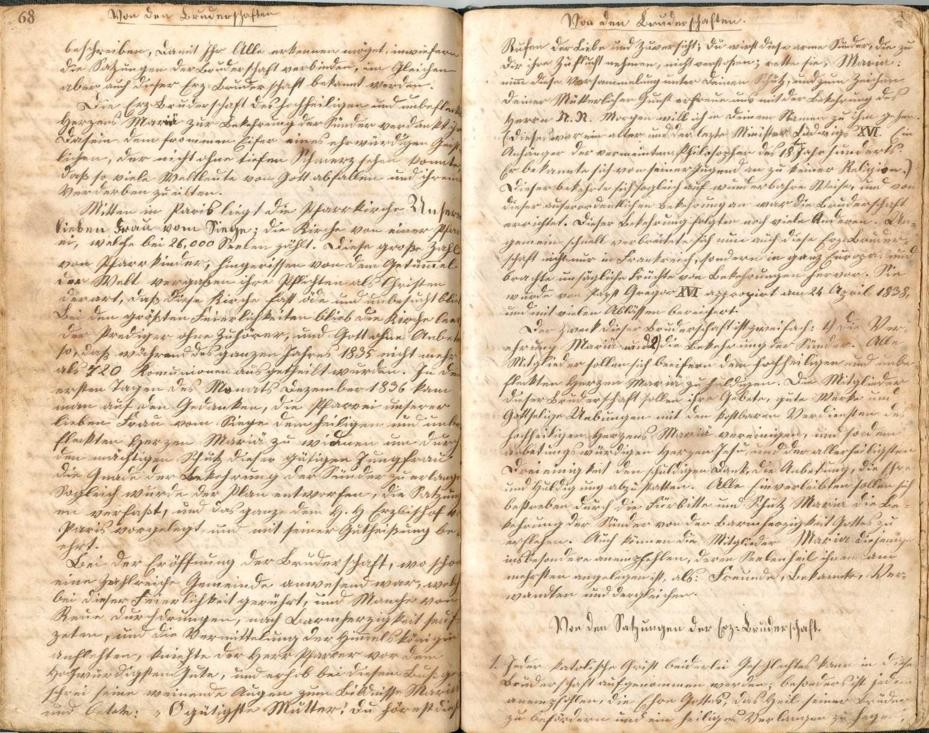 68 Von den Bruderschaften
beschreiben, damit Ihr Alle erkennen möget, inwiefern
die Satzungen der Bruderschaft verbinden, im Gleichen
aber auch dieser Erz-Bruderschaft bekannt werden.
Die Erz-Bruderschaft des hochheiligen und unbefleckten
Herzens Mariä zur Bekehrung der Sünder verdankt ihr
Dasein dem frommen Eifer eines ehrwürdigen Geist-
lichen, der nicht ohne tiefen Schmerz sehen konnte
daß so viele Weltleute von Gott abfallen und ihrem
Verderben zueilten.
Mitten in Paris liegt die Pfarrkirche Unserer
lieben Frau vom Siege; die Kirche von einer Pfar-
rei, welche bei 26,000 Seelen zählt. Diese große Zahl
von Pfarrkinder, hingerissen von dem Getümmel
der Welt vergaßen ihre Pflichten als Christen
derart, daß diese Kirche fast öde und unbesucht blieb
Bei den größten Feierlichkeiten blieb die Kirche leer
der Prediger ohne Zuhörer, und Gott ohne Anbeter
so, daß während des ganzen Jahres 1835 nicht mehr
als 720 Kommunionen ausgetheilt wurden. In den
ersten Tagen des Monats Dezember 1836 kam
man auf den Gedanken, die Pfarrei unserer
lieben Frau vom Siege dem heiligen und unbe-
fleckten Herzen Mariä zu widmen um durch
den mächtigen Schutz dieser gütigen Jungfrau
die Gnade der Bekehrung der Sünder zu erlangen
Sogleich wurde der Plan entworfen, die Satzung-
en verfaßt, und das ganze dem H. H. Erzbischof v.
Paris vorgelegt und mit seiner Gutheißung be-
ehrt.
Bei der Eröffnung der Bruderschaft, wo schon
eine zahlreiche Gemeinde anwesend war, welche
bei dieser Feierlichkeit gerührt, und Manche von
Reue durchdrungen, nach Barmherzigkeit seuf-
zeten, und die Vermittelung der Himmelskönigin
anflehten, kniete der Herr Pfarrer vor dem
Hochwürdigsten Gute, und erhob bei diesem Buß ge-
schrei seine weinende Augen zum Bildniße Mariä
und betete: „O gütigste Mutter! du hörest dieß
Von den Bruderschaften.
Rufen der Liebe und Zuversicht; du wirst diese arme Sünder, die zu
dir ihre Zuflucht nehmen, nicht verstoßen; rette sie, Maria:
nim diese Versammelung unter deinen Schutz, und zum Zeichen
deiner Mütterlicher Gunst erfreue uns mit der Bekehrung des
Herrn N. N. Morgen will ich in deinem Namen zu ihm gehen.
(dieses war ein alter und der letzte Minister Ludwigs XVI. ein
Anhänger der vermeinten Philosophen des 18. Jahrhunderts
Er bekannte sich von seiner Jugend an zu keiner Religion.)
Dieser bekehrte sich sogleich auf wunderbare Weise, und von
dieser außerordentlichen Bekehrung an war die Bruderschaft
errichtet. Dieser Bekehrung folgten noch viele Anderen. Un-
gemein schnell verbreitete sich nun auch diese Erz-Bruder-
schaft nicht nur in Frankreich, sondern in ganz Europa und
brachte unsägliche Früchte von Bekehrungen hervor. Sie
wurde von Papst Gregor XVI approbirt am 24 April 1838,
und mit vielen Abläßen bereichert.
Der Zweck dieser Bruderschaft ist zweifach: 1) die Ver-
ehrung Mariä und 2) die Bekehrung der Sünder. Alle
Mitglieder sollen sich beeifern dem hochheiligen und unbe-
fleckten Herzen Mariä zu huldigen. Die Mitglieder
dieser Bruderschaft sollen ihre Gebete, gute Werke und
Gottselige Uebungen mit den kostbaren Verdiensten des
hochheiligen Herzens Mariä vereinigen, und so dem
anbetungswürdigen Herzen Jesu, und der allerheiligsten
Dreieinigkeit den schuldigen Dank, die Anbetung, die Ehre
und Huldigung abzustatten. Alle Einverleibten sollen sich
bestreben durch die Fürbitte und Schutz Mariä die Be-
kehrung der Sünder von der Barmherzigkeit Gottes zu
erflehen. Auch können die Mitglieder Maria diejenigen
insbesondere anempfehlen, deren Seelenheil ihnen am
mehrsten angelegen ist, als: Freunde, Bekannte, Ver-
wandten und dergleichen.
Von den Satzungen der Erz-Bruderschaft.
1. Jeder katolische Christ beiderlei Geschlechtes kann in diese
Bruderschaft aufgenommen werden; besonders ist jedem
anempfohlen, die Ehre Gottes, das Heil seiner Brüder
zu befördern und ein heiliges Verlangen zu hegen,